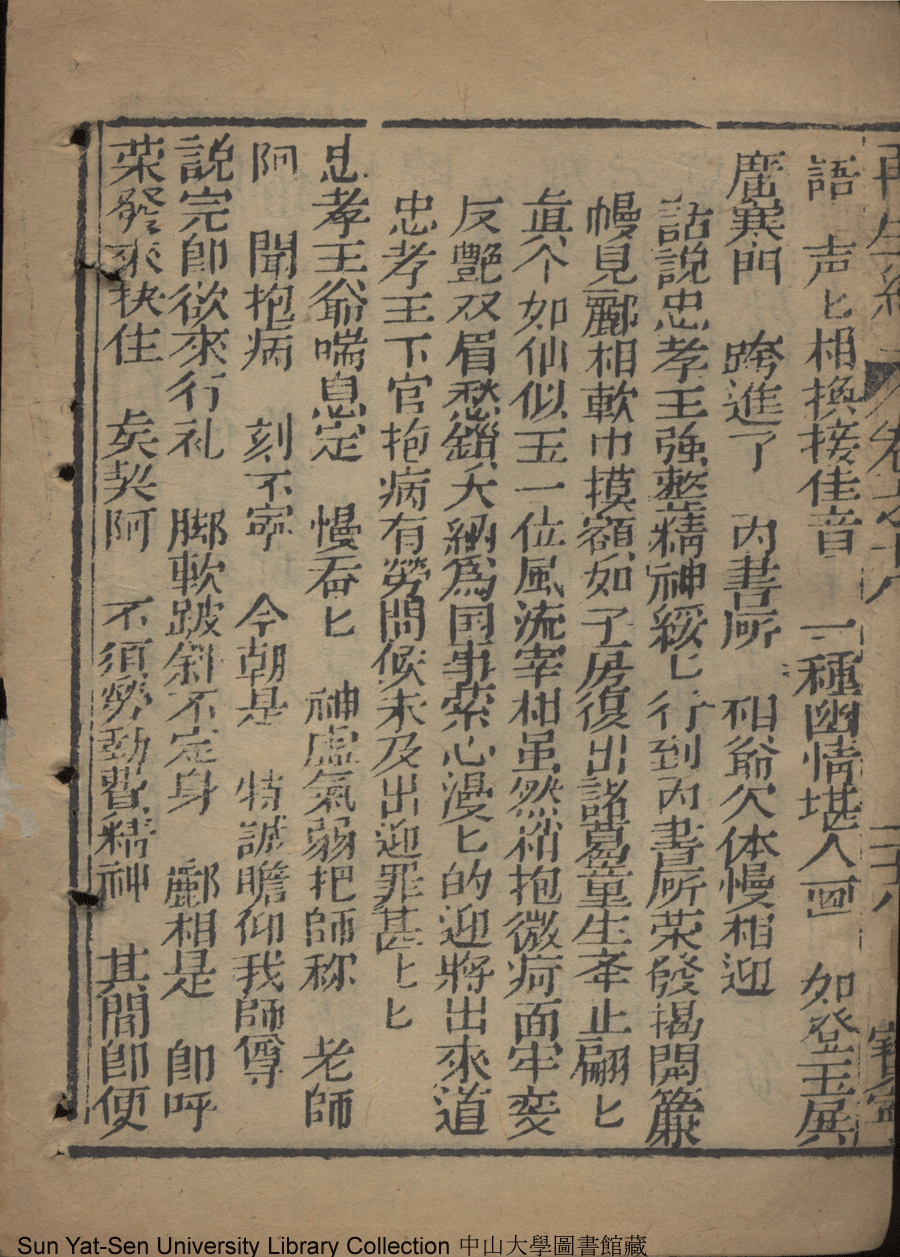 再生緣 卷之十八 二十八
語 声匕相換接佳音 一種幽情堪入画 如登玉𡱈
廣寒門 跨進了 內書所 相爺欠体慢相迎
話說忠孝王強整精神緩匕行到內書房荣發揭開簾
幔見酈相軟巾摸額如子房復出諸葛重生峯止翩匕
眞个如仙似玉一位風流宰相虽然稍抱微疴面牢变
反艷双眉愁鎖夭納為国事萦心漫匕的迎將出來道
忠孝王下官抱病有劳問候未及出迎罪甚匕匕
忠孝王爺喘息定 慢吞匕 神虛氣弱把師称 老師
阿 聞抱病 刻不寧 今朝是 特誠瞻仰我師尊
說完即欲來行礼 脚軟跛斜不定身 酈相是 即呼
荣發來扶住 矣契阿 不須勞動費精神 其間即便
Sun Yat-Sen University Library Collection 中山大學圖書館藏